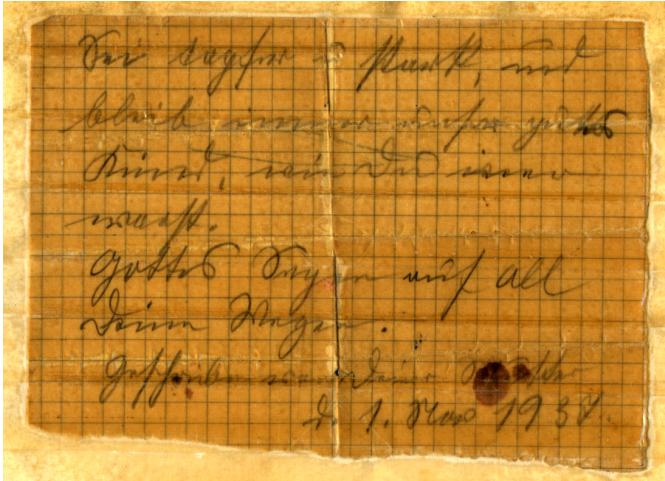 Sei tapfer u stark, und
bleib immer unser gutes
Kind, wie Du immer
warst.
Gottes Segen auf all
Deinen Wegen.
Geschrieben von Deiner Mutter
d. 1. Nov 1937.